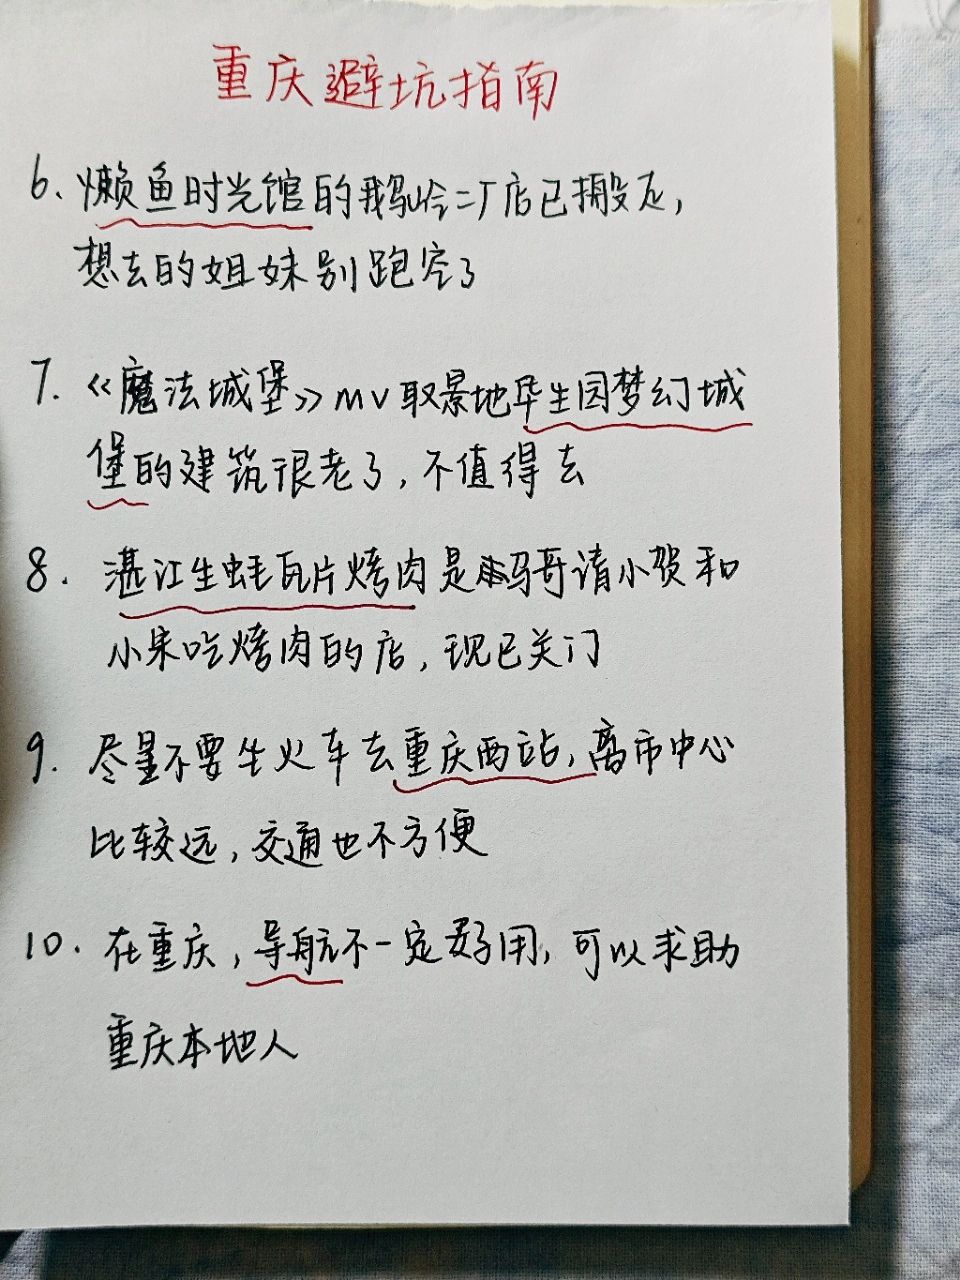 重庆避坑指南
6、懒鱼时光馆的鹅岭二厂店已搬走,
想去的姐妹别跑空了
7.《魔法城堡》mv取景地毕生园梦幻城
堡的建筑很老了,不值得去
8.湛江生蚝瓦片烤肉是码哥请小贺和
小朱吃烤肉的店,现已关门
9.尽量不要坐火车去重庆西站,离市中心
比较远,交通也不方便
10.在重庆,导航不一定好用,可以求助
重庆本地人